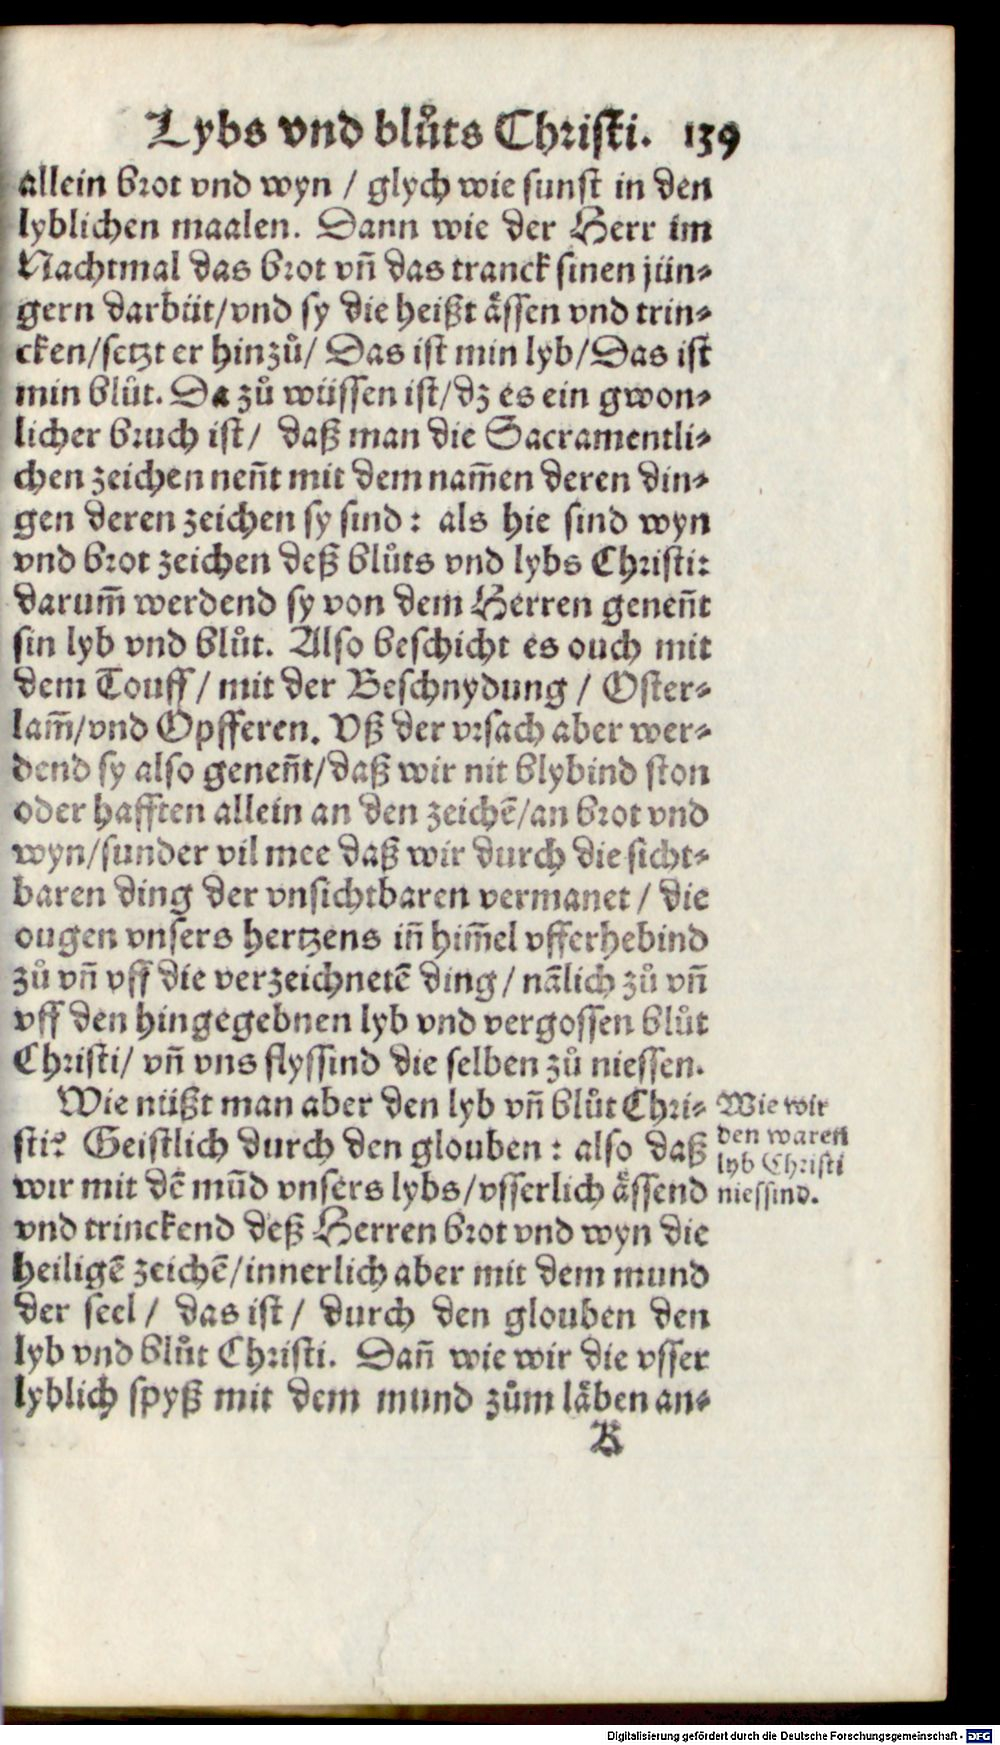 Lybs vnd blůts Christi. 139
allein brot vnd wyn / glych wie sunst in den
lyblichen maalen. Dann wie der Herr im
Nachtmal das brot vñ das tranck sinen jün⸗
gern darbüt/vnd sy die heißt ässen vnd trin⸗
cken/setzt er hinzů/ Das ist min lyb/Das ist
min blůt. Da zů wüssen ist/dz es ein gwon⸗
licher bruch ist/ daß man die Sacramentli⸗
chen zeichen neñt mit dem nam̄en deren din⸗
gen deren zeichen sy sind: als hie sind wyn
vnd brot zeichen deß blůts vnd lybs Christi:
darum̄ werdend sy von dem Herren geneñt
sin lyb vnd blůt. Also beschicht es ouch mit
dem Touff / mit der Beschnydung / Oster⸗
lam̄/vnd Opfferen. Vß der vrsach aber wer⸗
dend sy also geneñt/daß wir nit blybind ston
oder hafften allein an den zeichē/an brot vnd
wyn/sunder vil mee daß wir durch die sicht⸗
baren ding der vnsichtbaren vermanet / die
ougen vnsers hertzens iñ him̄el vfferhebind
zů vñ vff die verzeichnetē ding / nālich zů vñ
vff den hingegebnen lyb vnd vergossen blůt
Christi/ vñ vns flyssind die selben zů niessen.
Wie nüßt man aber den lyb vñ blůt Chri⸗
sti? Geistlich durch den glouben: also daß
wir mit dē mūd vnsers lybs/vsserlich ässend
vnd trinckend deß Herren brot vnd wyn die
heiligē zeichē/innerlich aber mit dem mund
der seel / das ist / durch den glouben den
lyb vnd blůt Christi. Dañ wie wir die vsser
lyblich spyß mit dem mund zům läben an⸗
Wie wir
den waren
lyb Christi
niessind.
B
Digitalisierung gefördert durch die Deutsche Forschungsgemeinschaft - DFG